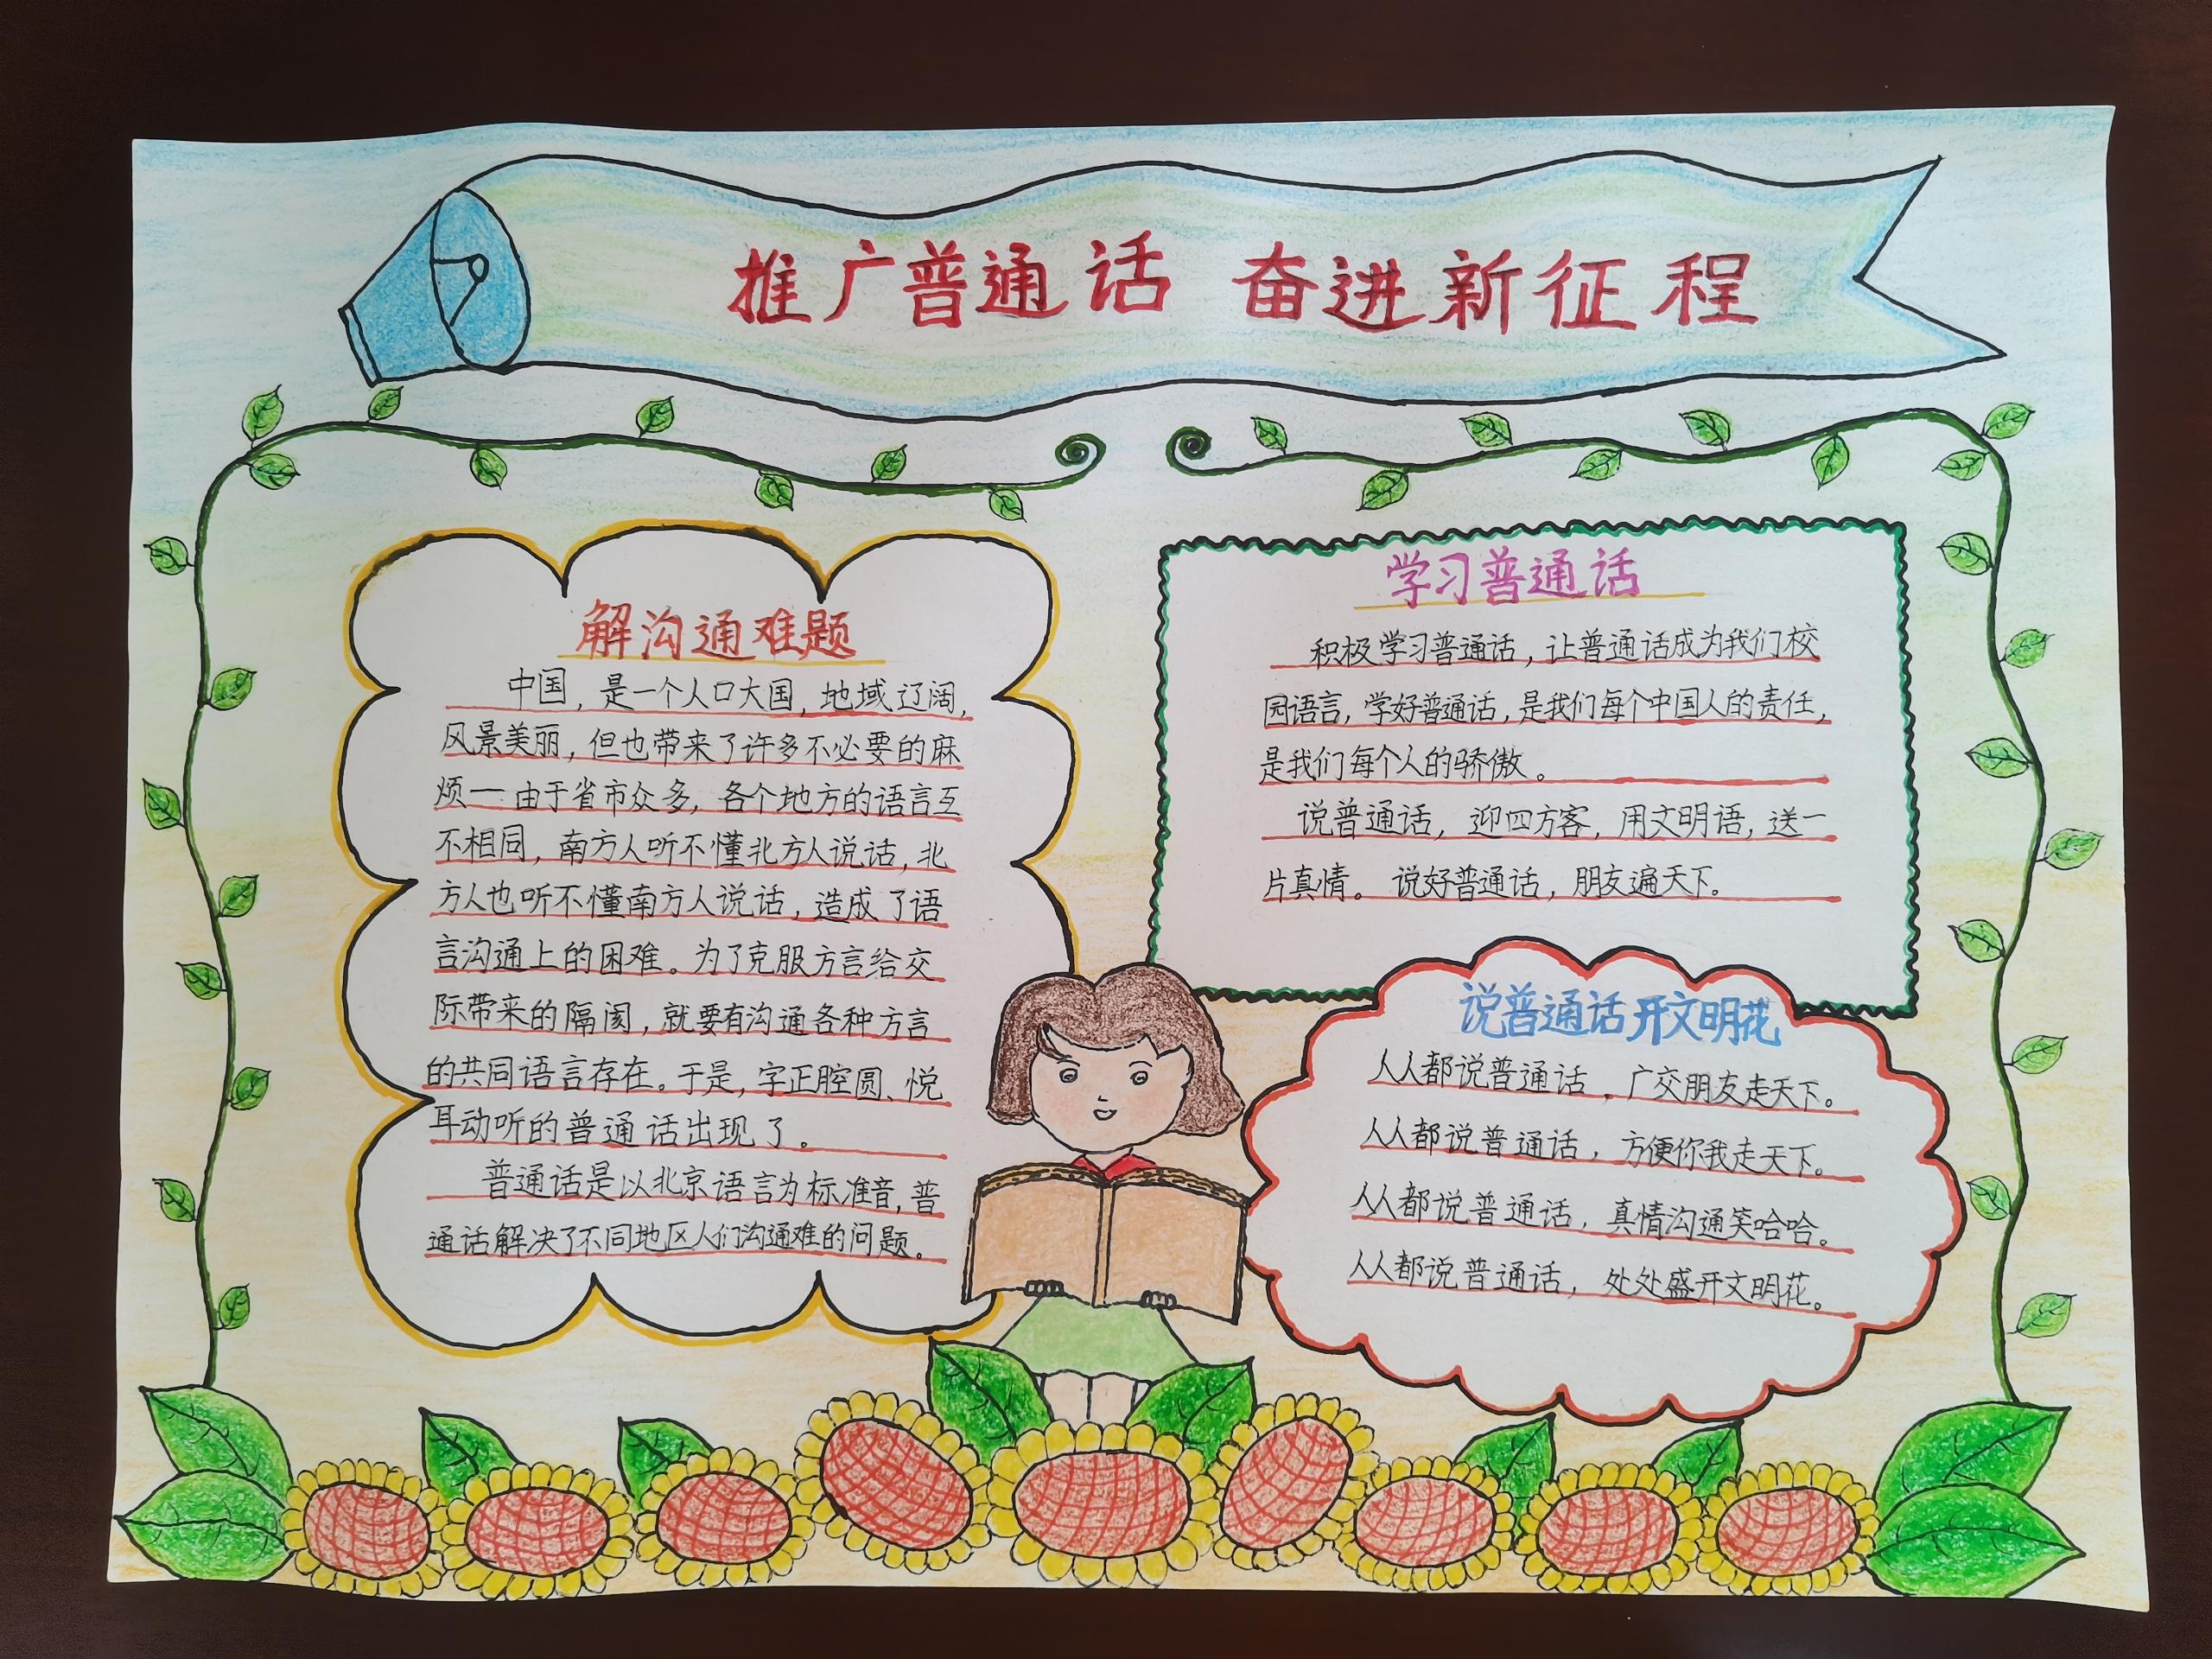 推广普通话 奋进新征程
解沟通难题
中国，是一个人口大国，地域辽阔，
风景美丽，但也带来了许多不必要的麻
烦——由于省市众多，各个地方的语言互
不相同，南方人听不懂北方人说话，北
方人也听不懂南方人说话，造成了语
言沟通上的困难。为了克服方言给交
际带来的隔阂，就要有沟通各种方言
的共同语言存在。于是，字正腔圆、悦
耳动听的普通话出现了。
普通话是以北京语言为标准音，普
通话解决了不同地区人们沟通难的问题。
学习普通话
积极学习普通话，让普通话成为我们校
园语言，学好普通话，是我们每个中国人的责任，
是我们每个人的骄傲。
说普通话，迎四方客，用文明语，送一
片真情。说好普通话，朋友遍天下。
说普通话开文明花
人人都说普通话，广交朋友走天下。
人人都说普通话，方便你我走天下。
人人都说普通话，真情沟通笑哈哈。
人人都说普通话，处处盛开文明花。